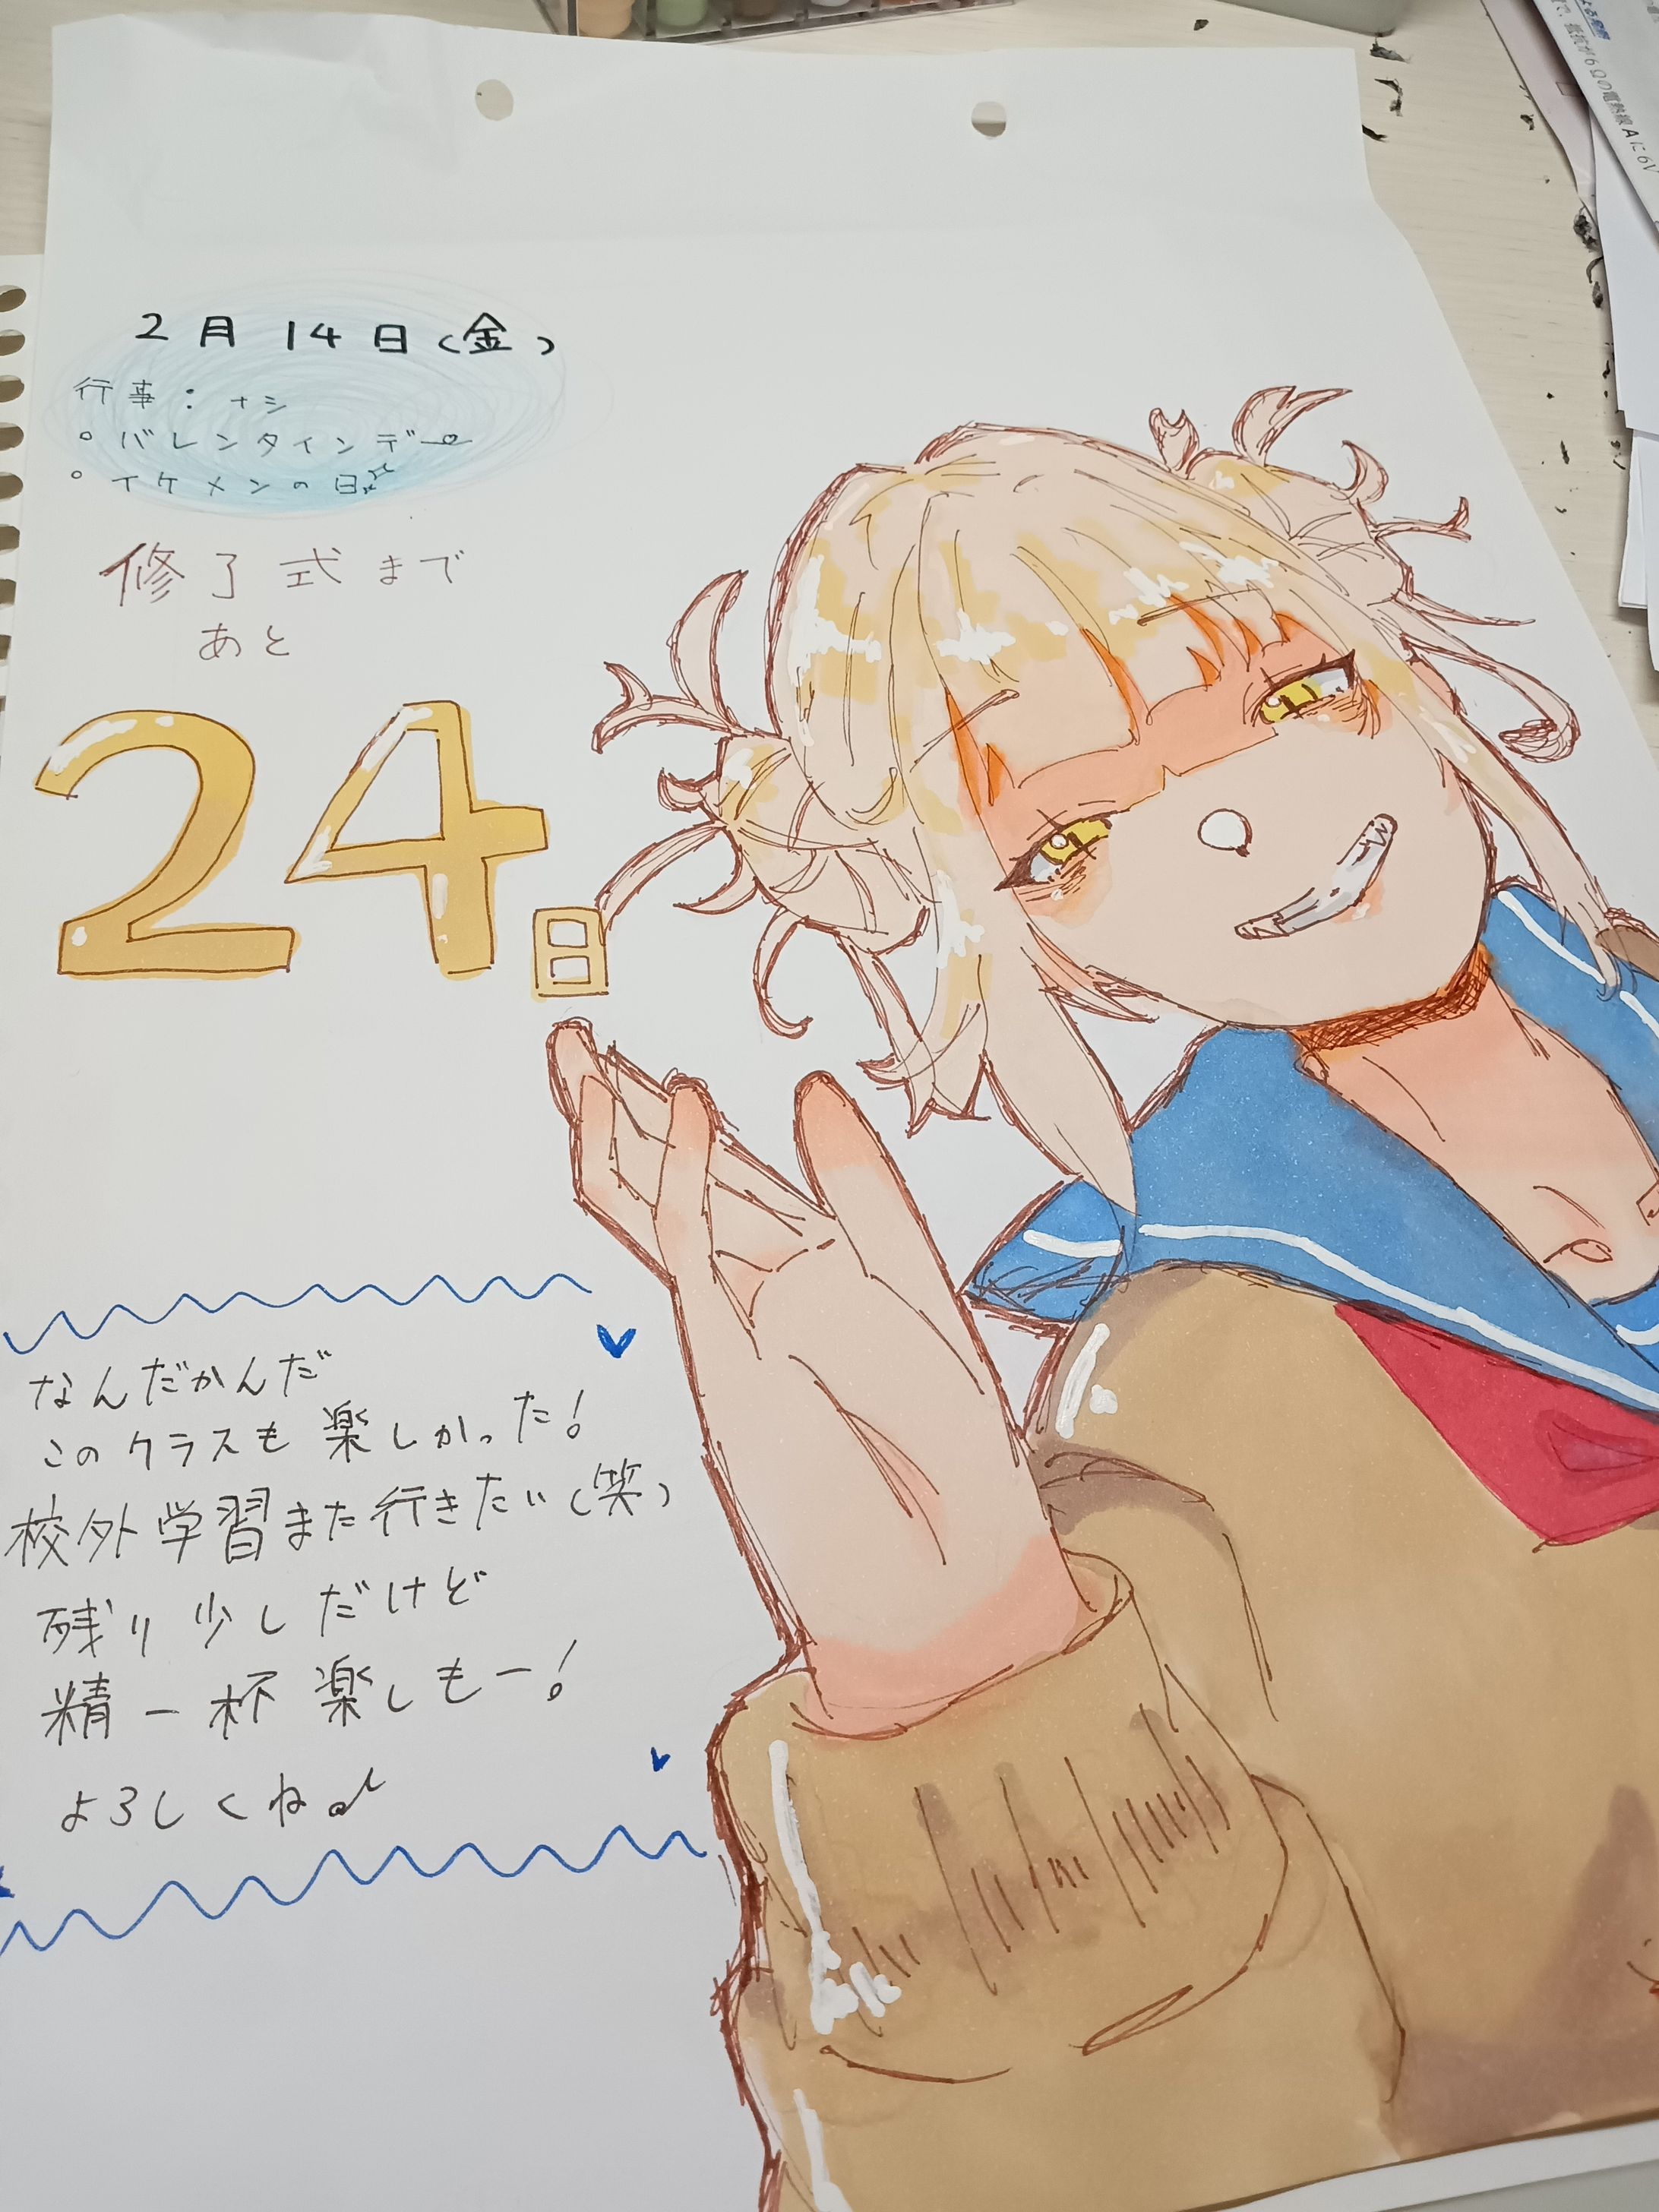 2月14日(金)
行事：ナシ
・バレンタインデー
・イケメンの日
修了式まで
あと
24日
なんだかんだ
このクラスも楽しかった！
校外学習また行きたい(笑)
残り少しだけど
精一杯楽しもー！
よろしくね♪
抵抗が6Ωの電熱線Aに6V